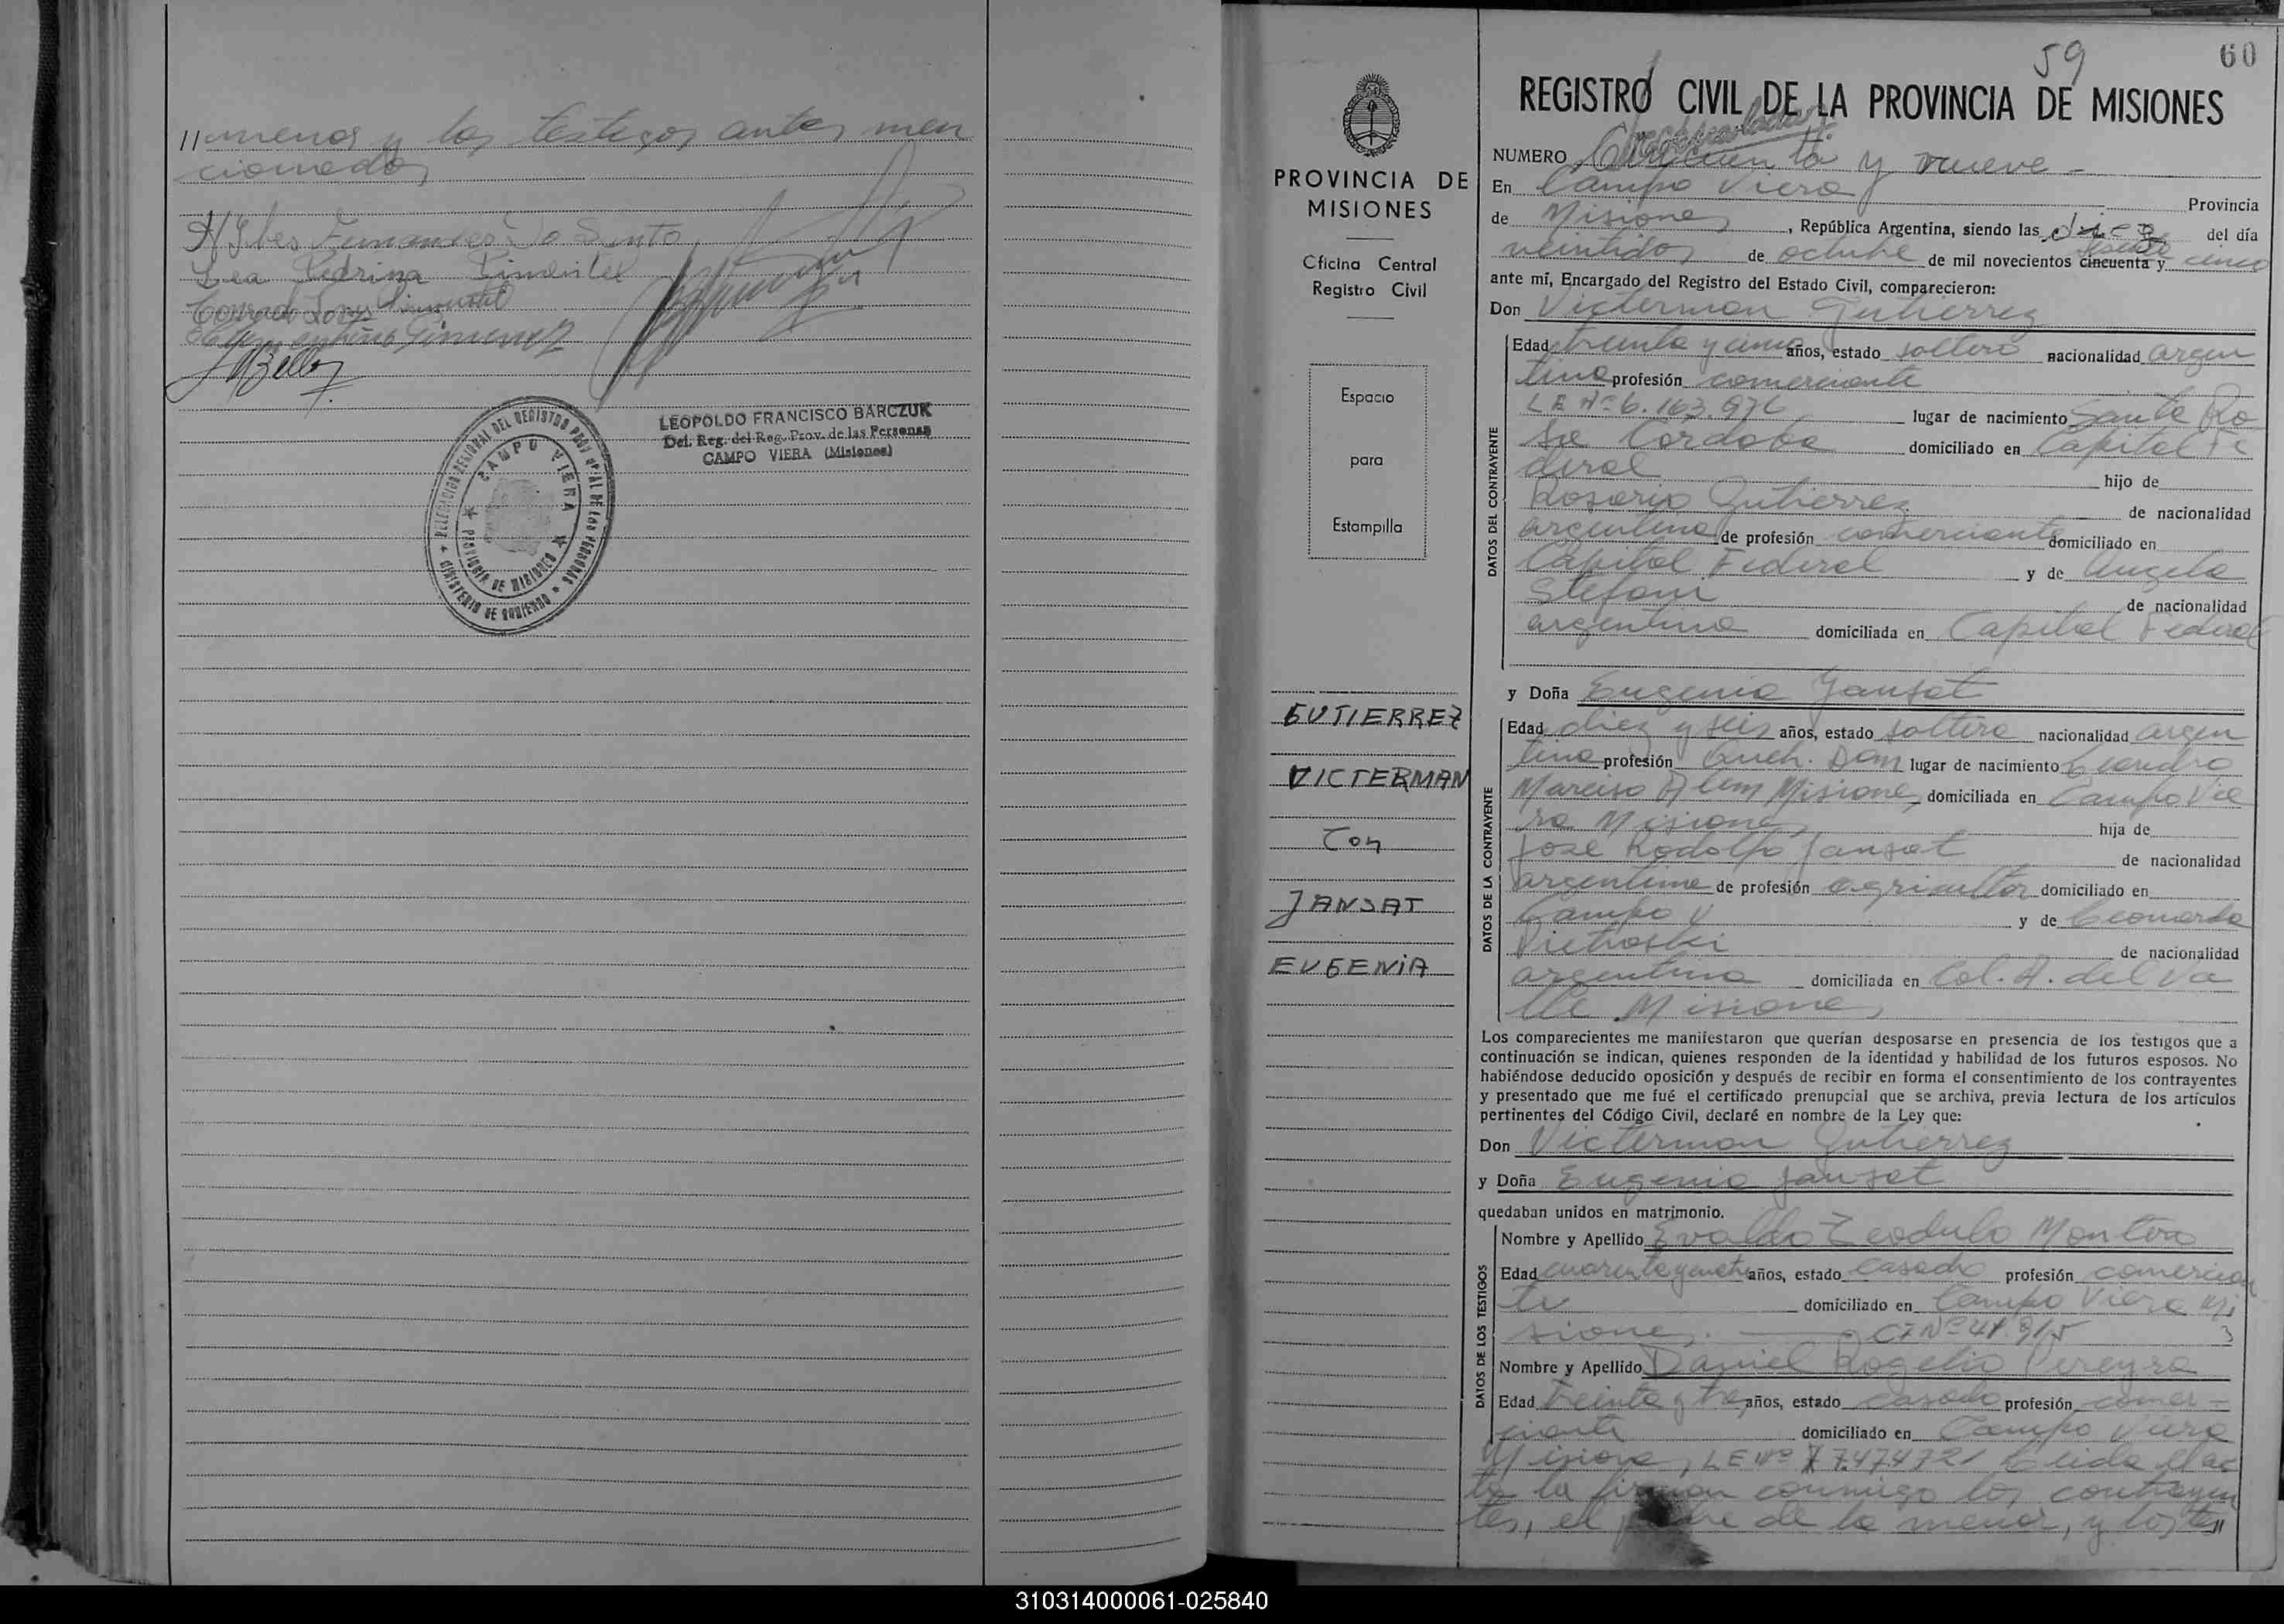 // menos y los testigos antes men
cionados
Lea Pedrina Pimentel
LEOPOLDO FRANCISCO BARCZUK
Del. Reg. del Reg. Prov. de las Personas
CAMPO VIERA (Misiones)
CAMPO VIERA
PROVINCIA DE MISIONES
MINISTERIO DE GOBIERNO
PROVINCIA DE
MISIONES
Oficina Central
Registro Civil
Espacio
para
Estampilla
GUTIERREZ
VICTERMAN
Con
JANSAT
EUGENIA
59
60
REGISTRO CIVIL DE LA PROVINCIA DE MISIONES
NUMERO Cincuenta y nueve -
En Campo Viera Provincia
de Misiones, República Argentina, siendo las diez del día
veintidos de octubre de mil novecientos cincuenta y sesenta cinco
ante mí, Encargado del Registro del Estado Civil, comparecieron:
Don Victerman Gutierrez
DATOS DEL CONTRAYENTE
Edad treinta y cinco años, estado soltero nacionalidad argen
tina profesión comerciante
LE Nº 6.163.976 lugar de nacimiento Santa Ro
sa Cordoba domiciliado en Capital Fe
deral hijo de
Rosario Gutierrez de nacionalidad
argentina de profesión comerciante domiciliado en
Capital Federal y de Angela
Stefani de nacionalidad
argentina domiciliada en Capital Federal
y Doña Eugenia Jansat
DATOS DE LA CONTRAYENTE
Edad diez y seis años, estado soltera nacionalidad argen
tina profesión Queh. Dom lugar de nacimiento Leandro
Narciso Alem Misiones domiciliada en Campo Vie
ra Misiones hija de
José Rodolfo Jansat de nacionalidad
argentina de profesión agricultor domiciliado en
Campo V y de Leonarda
Pietroski de nacionalidad
argentina domiciliada en Col. A. del Va
lle Misiones
Los comparecientes me manifestaron que querían desposarse en presencia de los testigos que a
continuación se indican, quienes responden de la identidad y habilidad de los futuros esposos. No
habiéndose deducido oposición y después de recibir en forma el consentimiento de los contrayentes
y presentado que me fué el certificado prenupcial que se archiva, previa lectura de los artículos
pertinentes del Código Civil, declaré en nombre de la Ley que:
Don Victerman Gutierrez
y Doña Eugenia Jansat
quedaban unidos en matrimonio.
DATOS DE LOS TESTIGOS
Nombre y Apellido Evaldo Teodulo Montero
Edad años, estado casado profesión comercian
te domiciliado en Campo Viera Mi
siones. CI Nº
Nombre y Apellido Daniel Rogelio Pereyra
Edad treinta y tres años, estado casado profesión comer-
ciante domiciliado en Campo Viera
Misiones, LE Nº 7.474721 Leida el ac
ta la firman conmigo los contrayen
tes, el padre de la menor, y los tes//
310314000061-025840